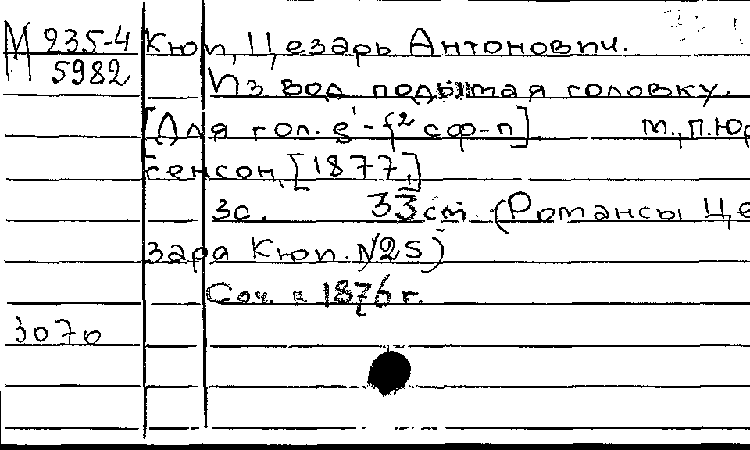 М 235-4 Кюи, Цезарь Антонович.
5982 Из вод подымая головку.
[Для гол. e¹-f² с ф-п] М., П. Юр
генсон, [1877.]
3с. 33см. (Романсы Це
заря Кюи. №25)
Соч. в 1876 г.
3070